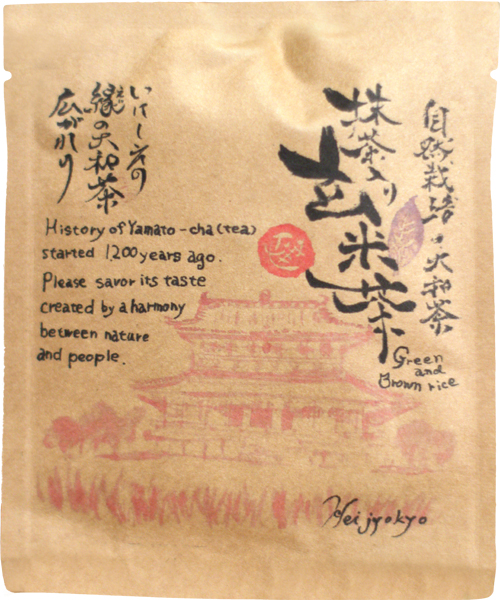 自然栽培・大和茶
抹茶入り
玄米茶
Green
and
Brown rice
いにしえの
縁の大和茶
広がれり
History of Yamato-cha(tea)
started 1200 years ago.
Please savor its taste
created by a harmony
between nature
and people.
Heijyokyo